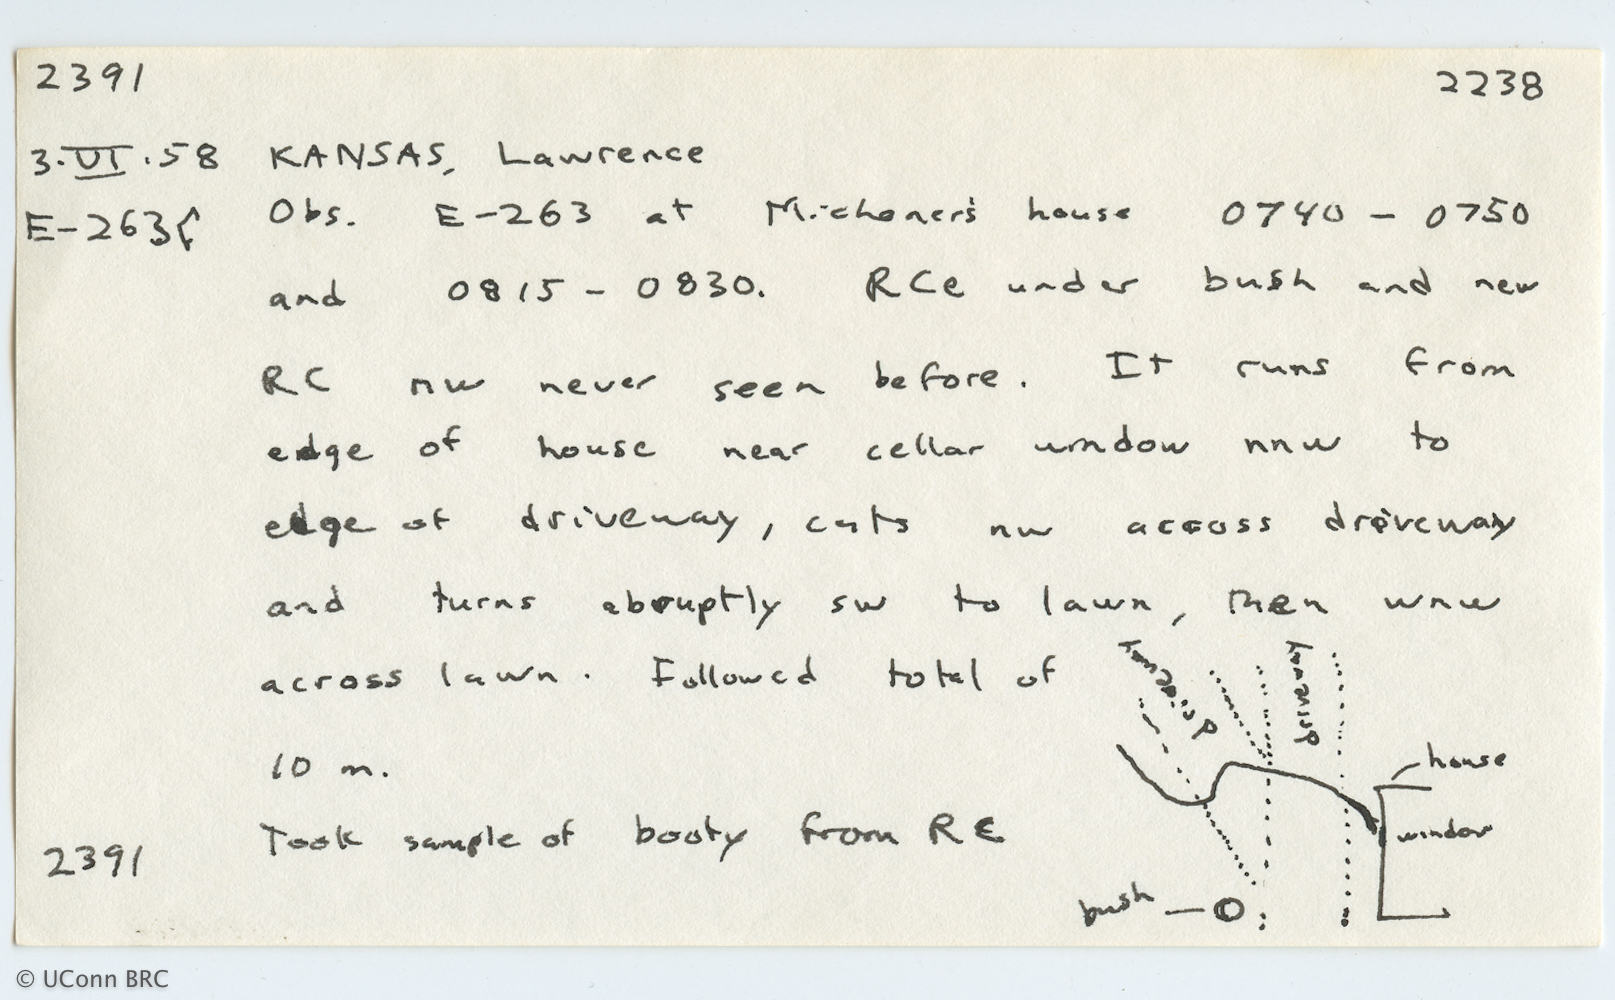 2391 2238
3.VI.58 KANSAS, Lawrence
E-263f Obs. E-263 at Michener's house 0740 - 0750
and 0815 - 0830. RCe under bush and new
RC nw never seen before. It runs from
edge of house near cellar window nnw to
edge of driveway, cuts nw across driveway
and turns abruptly sw to lawn, then wnw
across lawn. Followed total of
10 m.
Took sample of booty from RC
2391
driveway
driveway
house
window
bush
© UConn BRC